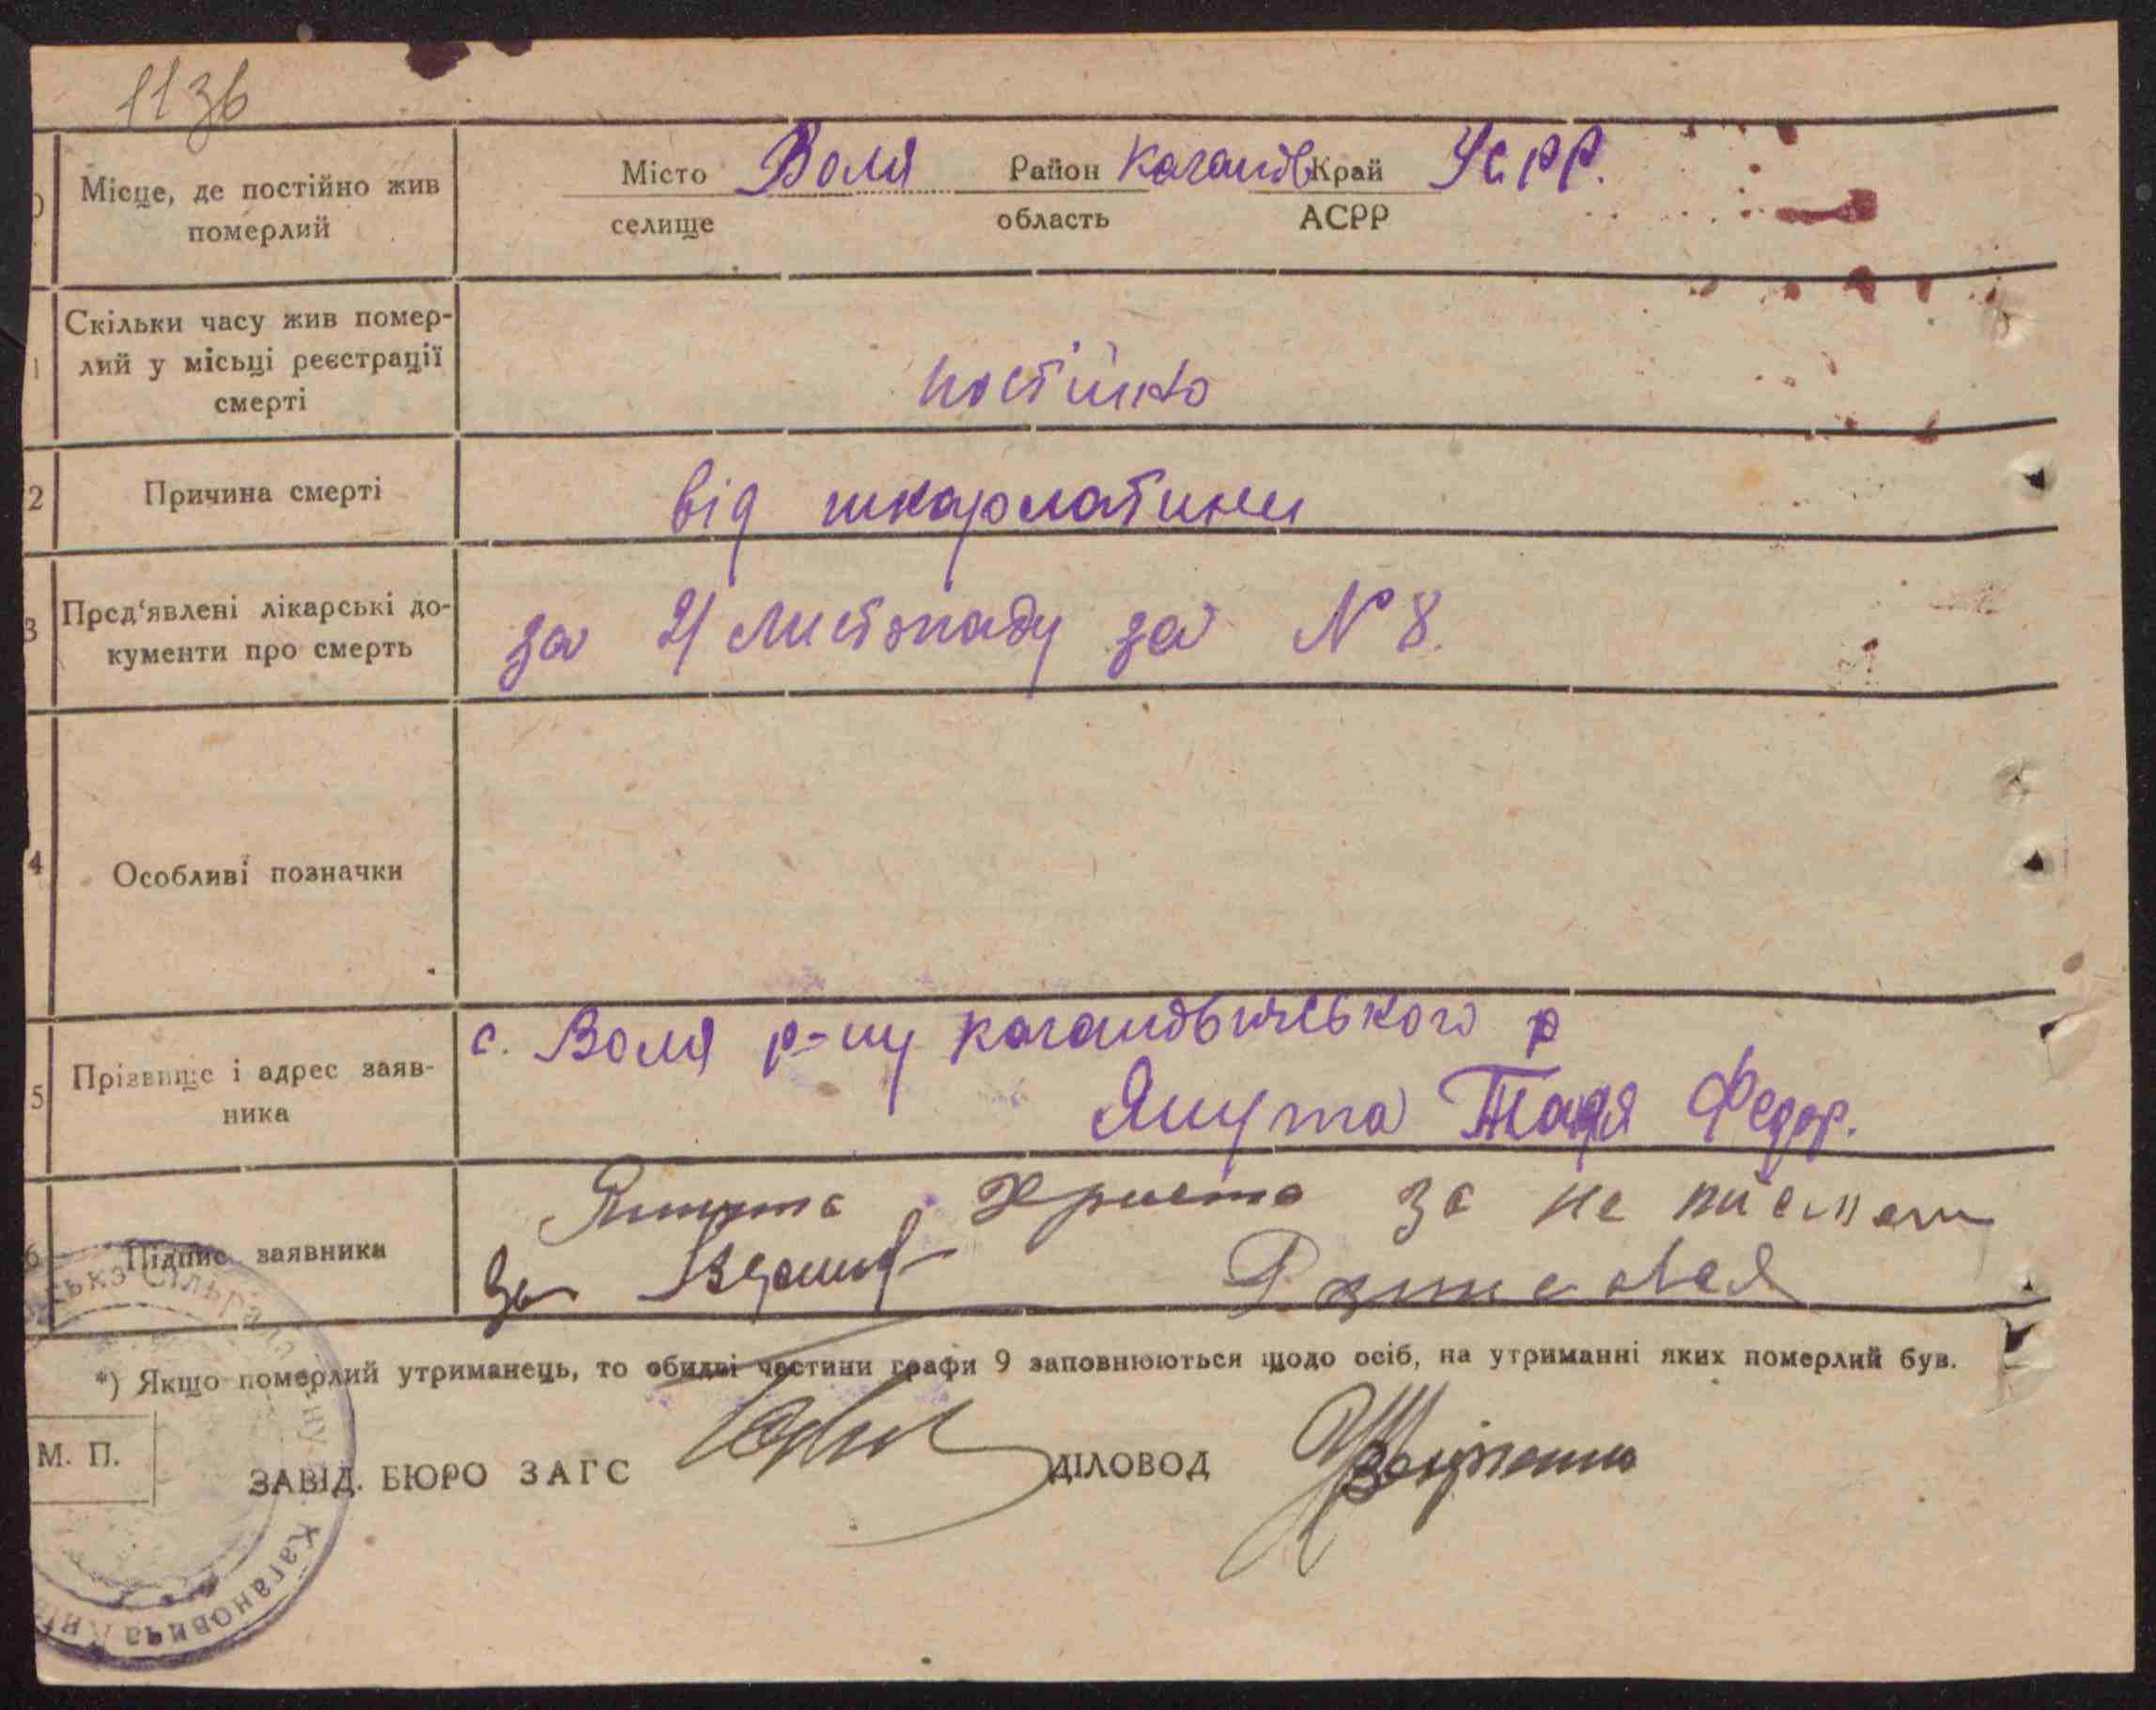 1136
Місце, де постійно жив
померлий
Місто Воля Район Каганов Край УСРР.
селище область АСРР
Скільки часу жив помер-
лий у місьці реєстрації
смерті
постійно
2 Причина смерті
від шкарлатини
3 Пред'явлені лікарські до-
кументи про смерть
за 21 листопаду за № 8.
4 Особливі позначки
5 Прізвище і адрес заяв-
ника
с. Воля р-ну кагановичського р
Якута Федор.
6 Підпис заявника
Якута Христа за не
за
*) Якщо померлий утриманець, то обидві частини графи 9 заповнюються щодо осіб, на утриманні яких померлий був.
М. П.
ЗАВІД. БЮРО ЗАГС ДІЛОВОД
Кагановича